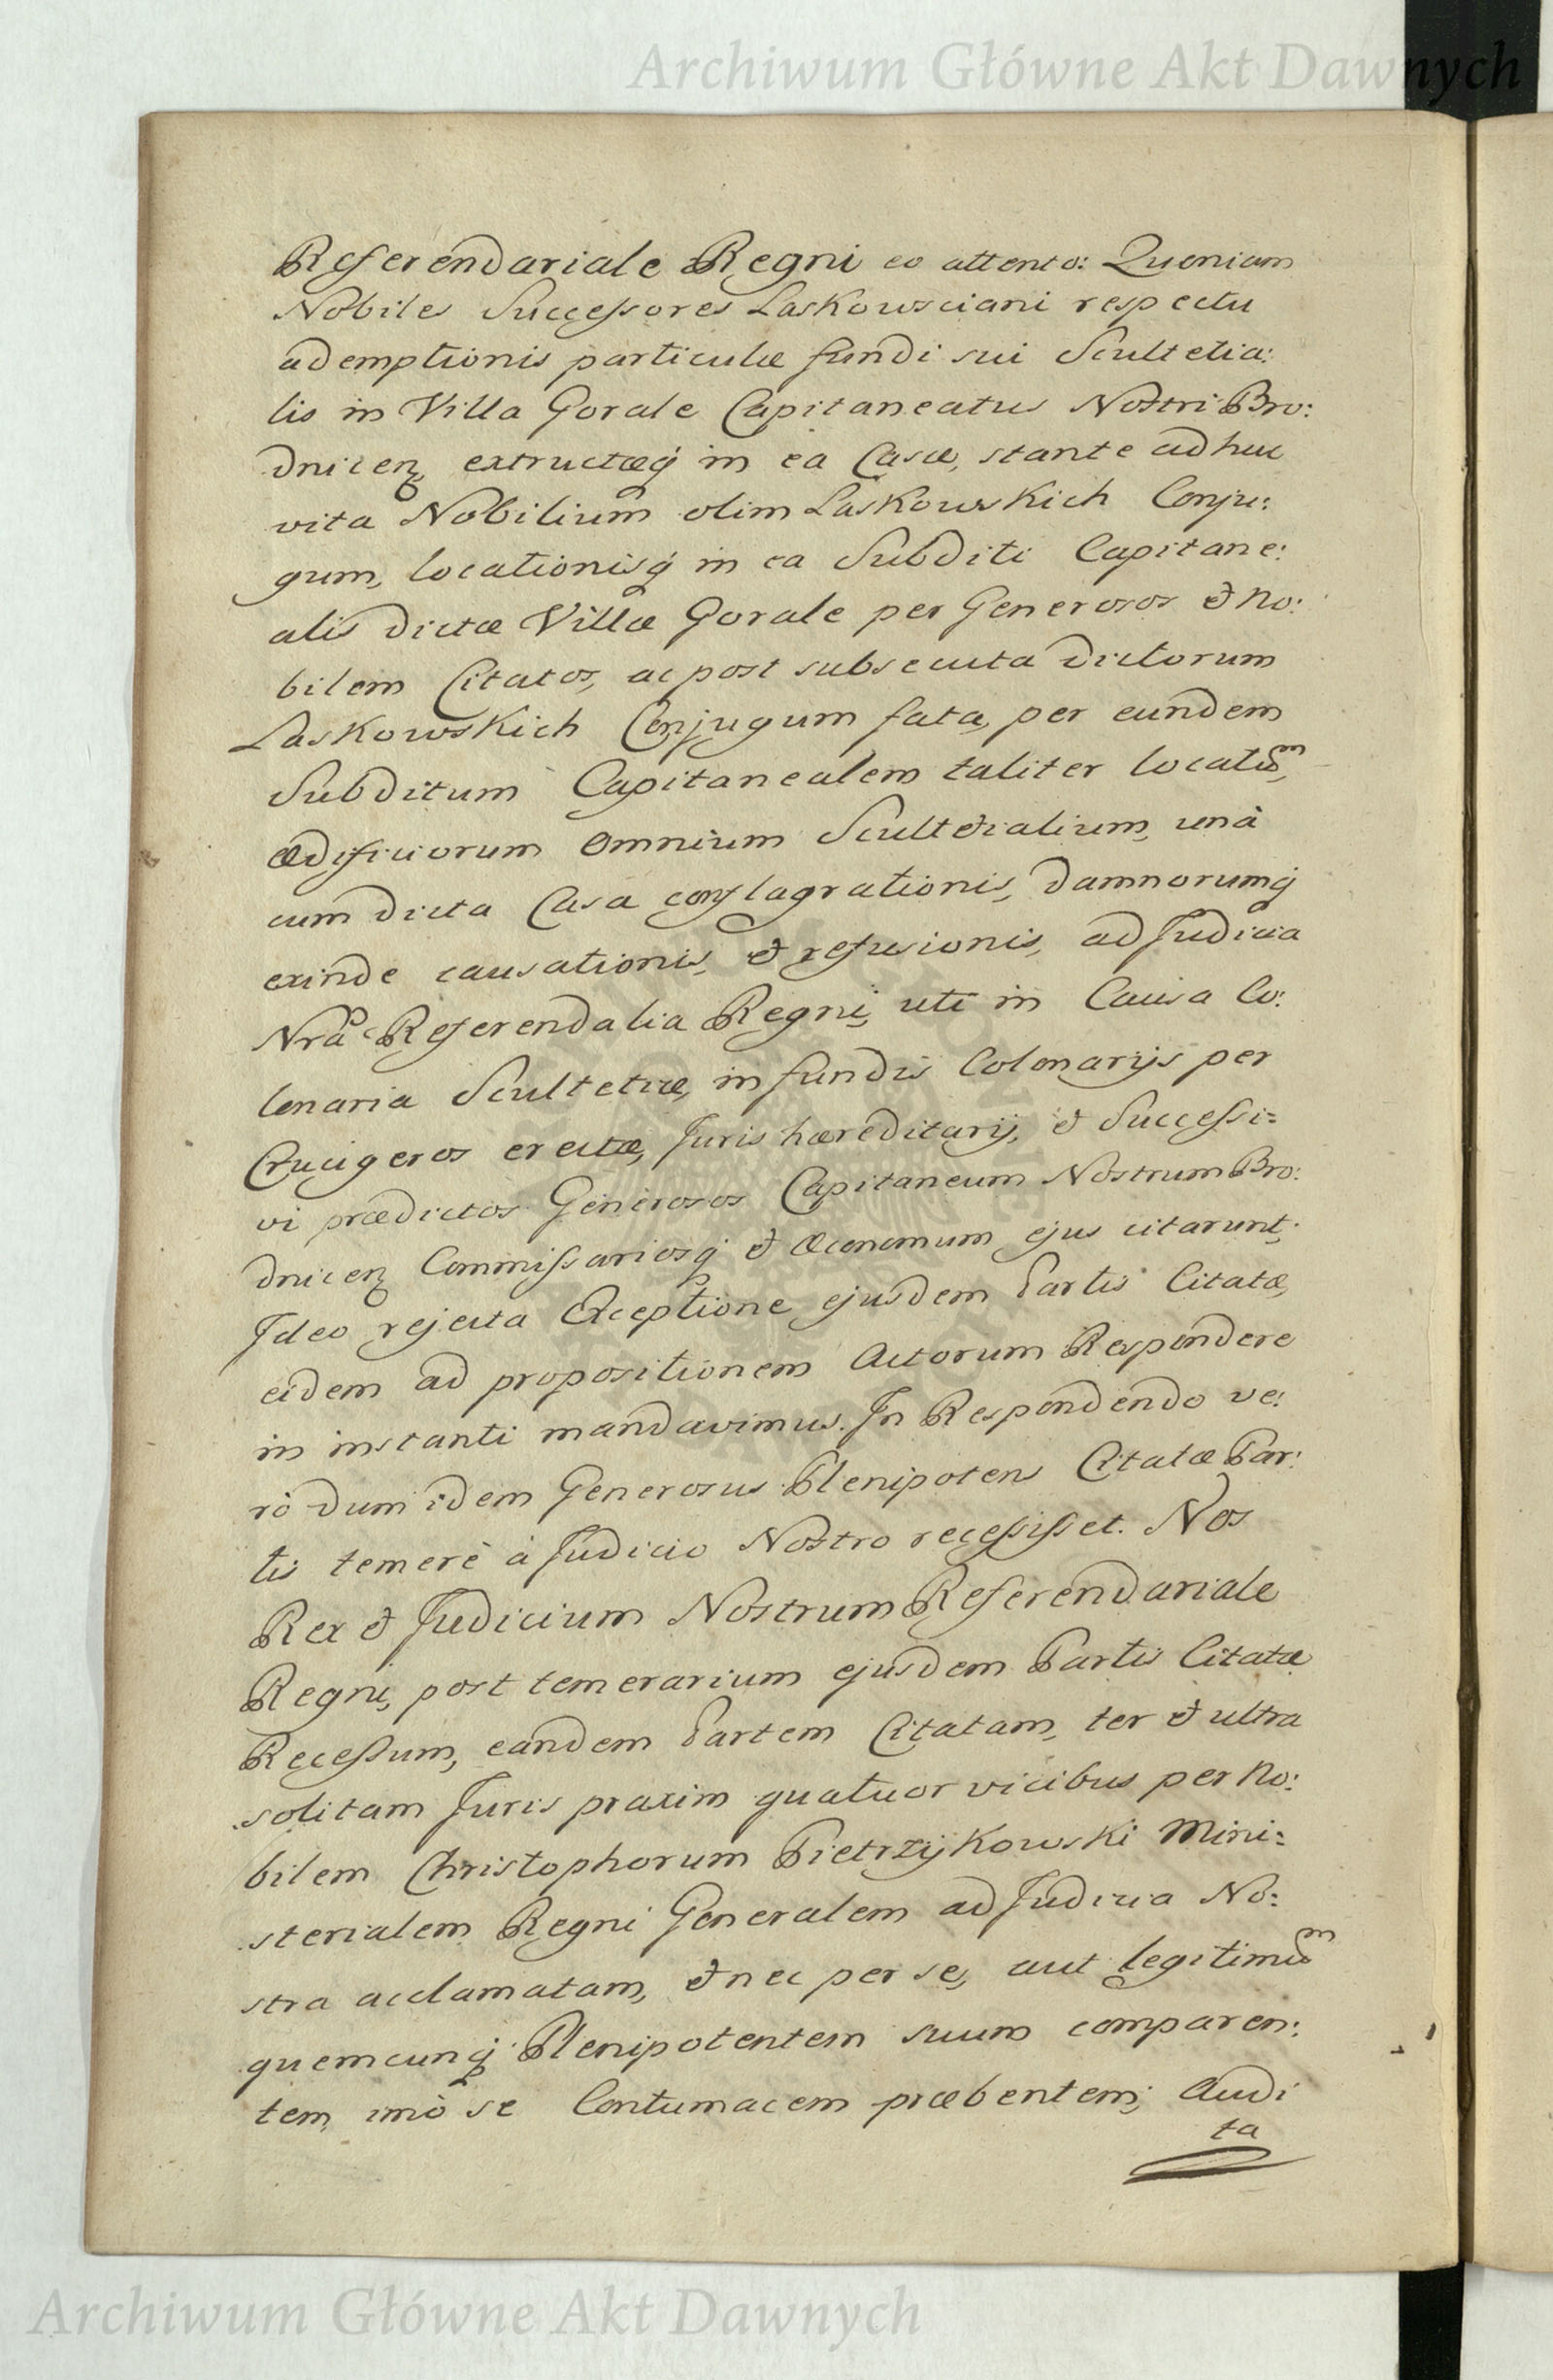 Archiwum Główne Akt Dawnych
Referendariale Regni eo attento: Quoniam
Nobiles Successores Laskowsciani respectu
ademptionis particulæ fundi sui Scultetia:
lis in Villa Gorale Capitaneatus Nostri Bro:
dnicen̄ extructæq́ in ea Casæ, stante adhuc
vita Nobilium olim Laskowskich Conju:
gum, locationisq́ in ea Subditi Capitane:
alis dictæ Villæ Gorale per Generosos & No:
bilem Citatos, ac post subsecuta dictorum
Laskowskich Conjugum fata, per eundem
Subditum Capitanealem taliter locatũm,
ædificiorum omnium Scultetialium, unà
cum dicta Casa conflagrationis, damnorumq́
exinde causationis, & refusionis, ad Judicia
Nrã Referendalia Regni, uti in Causa Co:
lonaria Scultetiæ, in fundis Colonarijs per
Crucigeros erectæ, Juris hæreditarij, & Successi=
vi prædictos Generosos Capitaneum Nostrum Bro:
dnicen̄ Commissariosq́ & Œconomum ejus citarunt.
Ideo rejecta Exceptione ejusdem Partis Citatæ,
eidem ad propositionem Actorum Respondere
in instanti mandavimus. In Respondendo ve:
rò dum idem Generosus Plenipotens Citatæ Par:
tis temerè à Judicio Nostro recessisset. Nos
Rex & Judicium Nostrum Referendariale
Regni, post temerarium ejusdem Partis Citatæ
Recessum, eandem Partem Citatam, ter & ultra
solitam Juris praxim quatuor vicibus per No:
bilem Christophorum Pietrzÿkowski Mini=
sterialem Regni Generalem ad Judicia No:
stra acclamatam, & nec per se, aut legitimũm
quemcunq́ Plenipotentem suum comparen:
tem, imò se Contumacem præbentem; Audi
ta
Archiwum Główne Akt Dawnych